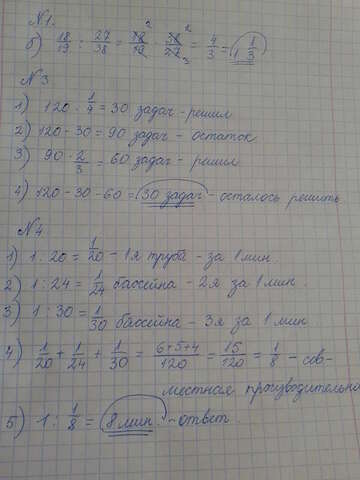 №1.
б) 18/19 : 27/38 = 18/19 · 38/27 = 4/3 = 1 1/3
№3
1) 120 · 1/4 = 30 задач - решил
2) 120 - 30 = 90 задач - остаток
3) 90 · 2/3 = 60 задач - решил
4) 120 - 30 - 60 = 30 задач - осталось решить
№4
1) 1 : 20 = 1/20 - 1я труба - за 1 мин.
2) 1 : 24 = 1/24 бассейна - 2я за 1 мин.
3) 1 : 30 = 1/30 бассейна - 3я за 1 мин
4) 1/20 + 1/24 + 1/30 = 6+5+4/120 = 15/120 = 1/8 - сов-
местная производительно
5) 1 : 1/8 = 8 мин. - ответ.